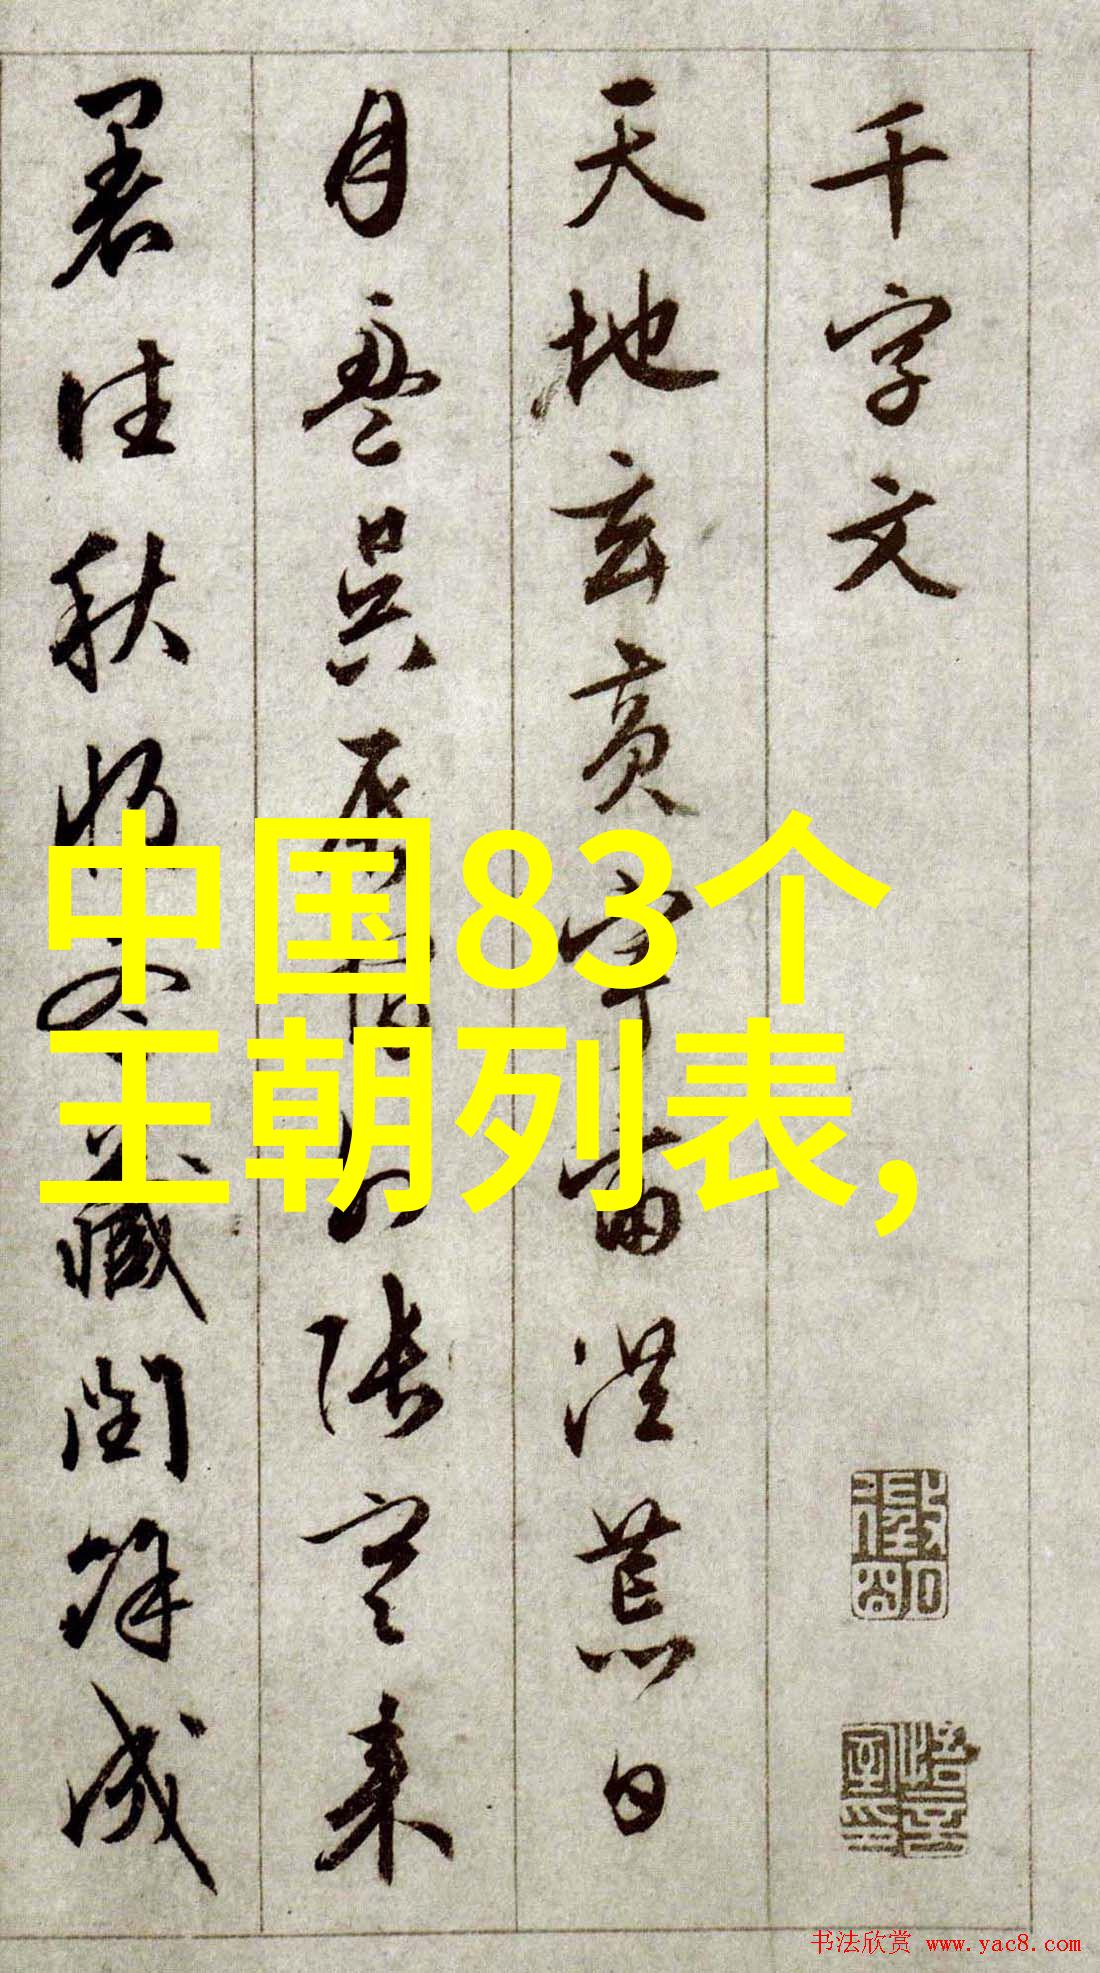 千字文
天地玄黄宇宙洪荒日
月盈昃辰宿列張寒来
暑往秋收冬藏閏餘成
中国83个
王朝列表,
书法欣赏 www.yac8.com